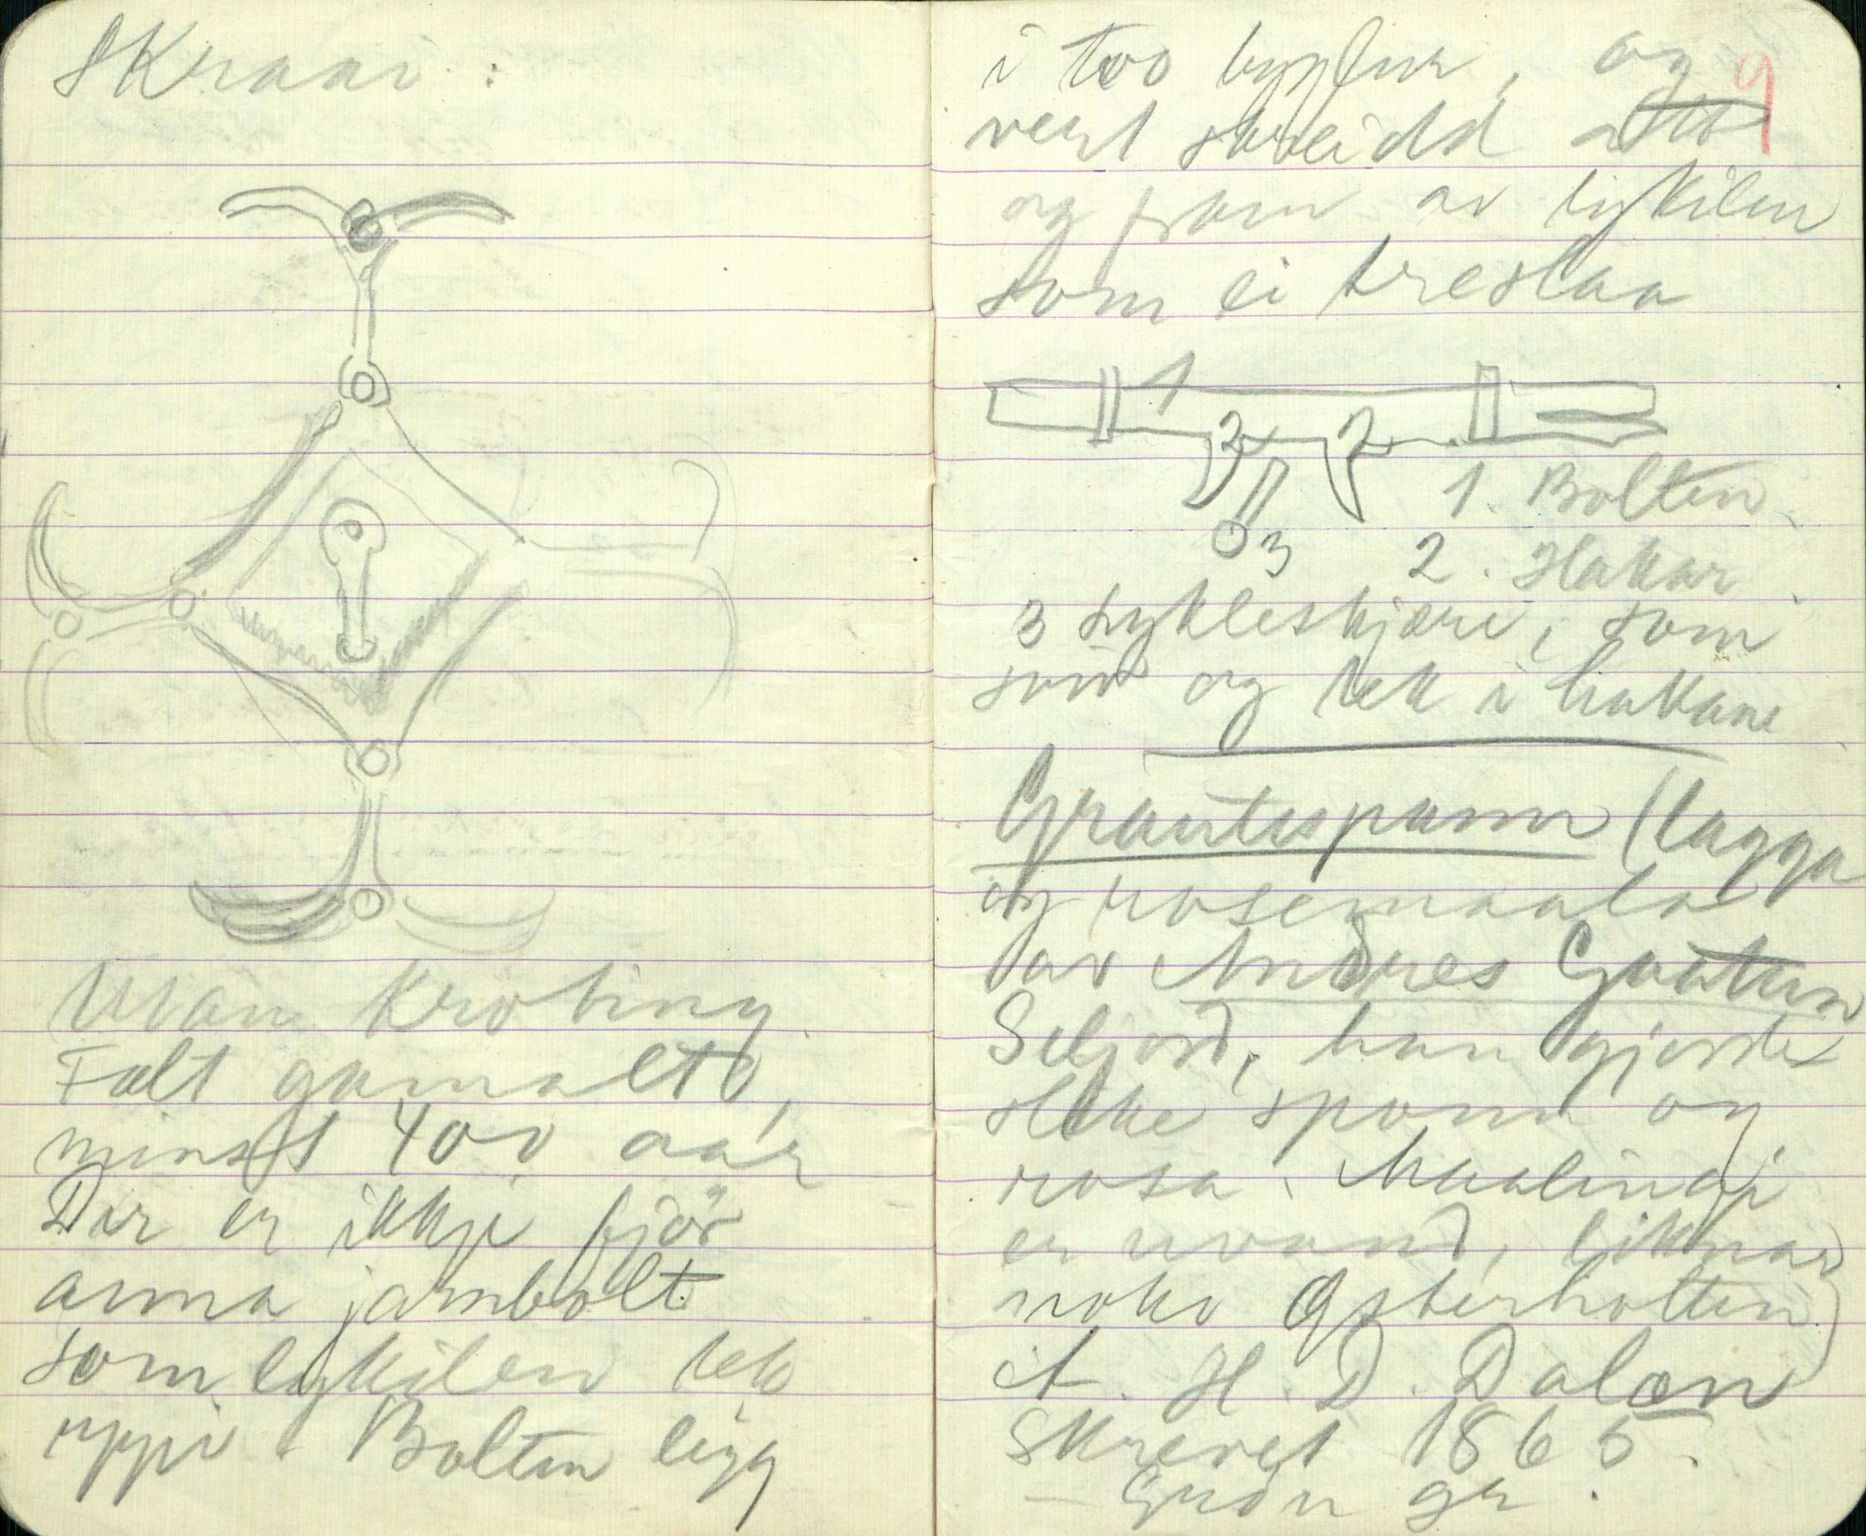 Skraai :
Utan kroting.
Fælt gamalt,
minst 400 aar
Der er ikkje fjør
anna jarnbolt
som lykilen tek
uppi. Bolten ligg
i two bygjlur, og 9
vert skreidd att
og fram av lykilen
som ei treslaa
1
2 2
1. Bolten.
3 2. Hakar.
3 Lykleskjæri, som
snur og tek i hakane
Grautespann (lagga
og rosemaala
av Andres Gaatun
Seljord, han gjorde
slike spann og
rosa. Maalingi
er uvand, liknar
noko Øysterholten)
åt. H. D. Dalæn
Skrevet 1865.
— Grøn gr.